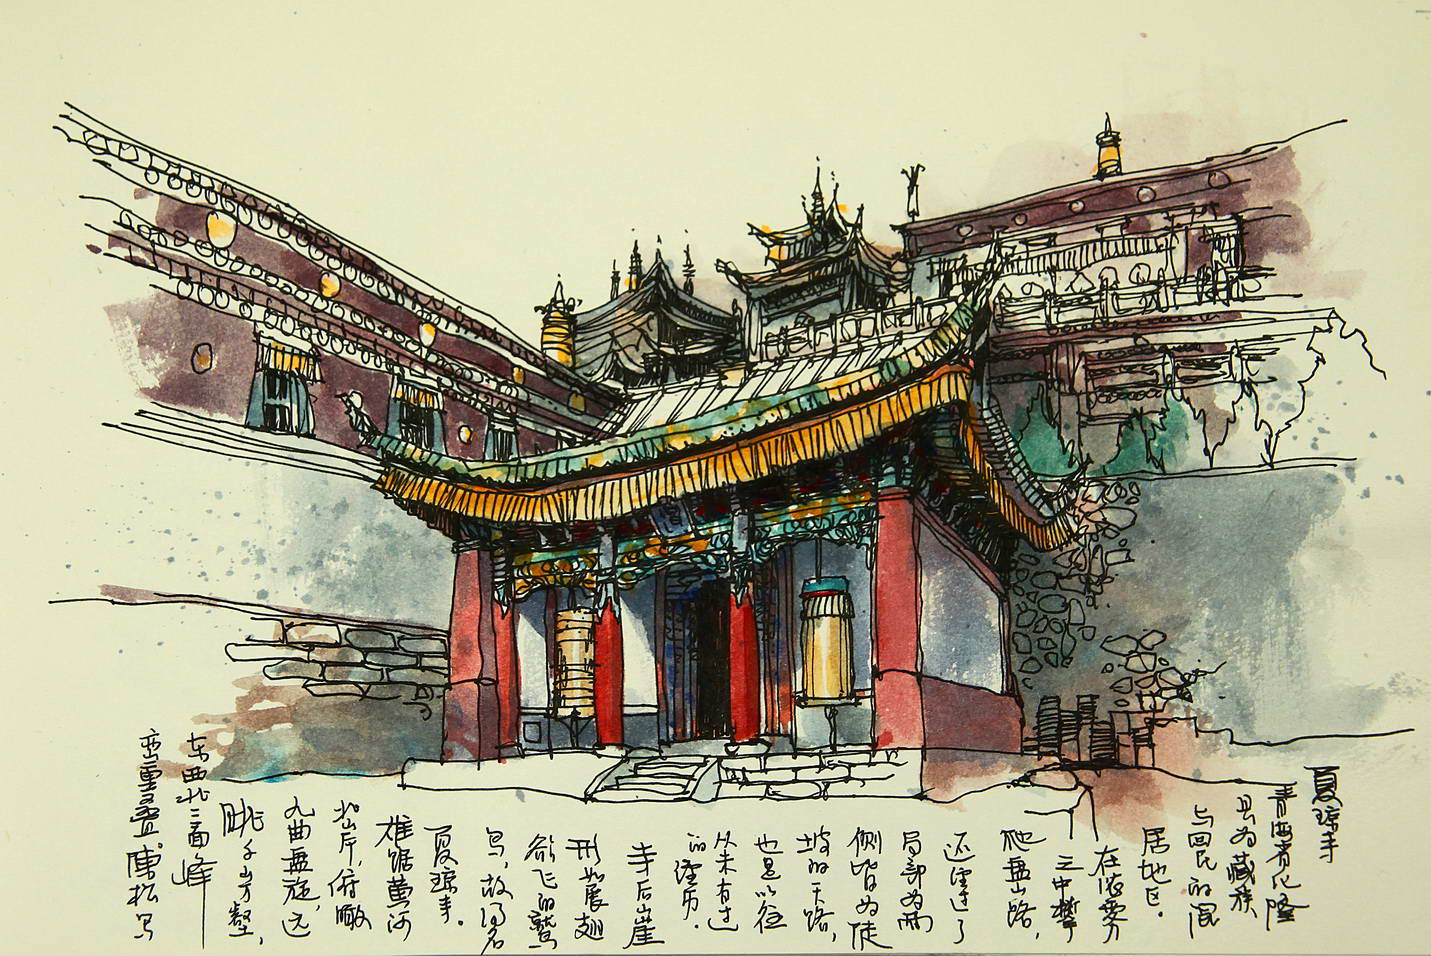 夏琼寺
青海省化隆
县为藏族
与回民的混
居地区.
在浓雾
之中攀
爬盘山路,
还经过了
局部为两
侧皆为陡
坡的天路,
也是以往
从未有过
的经历.
寺后山崖
形如展翅
欲飞的鹫
鸟,故得名
夏琼寺.
雄踞黄河
北岸,俯瞰
九曲盘旋,远
眺千山万壑,
东西北三面峰
峦重叠.松写